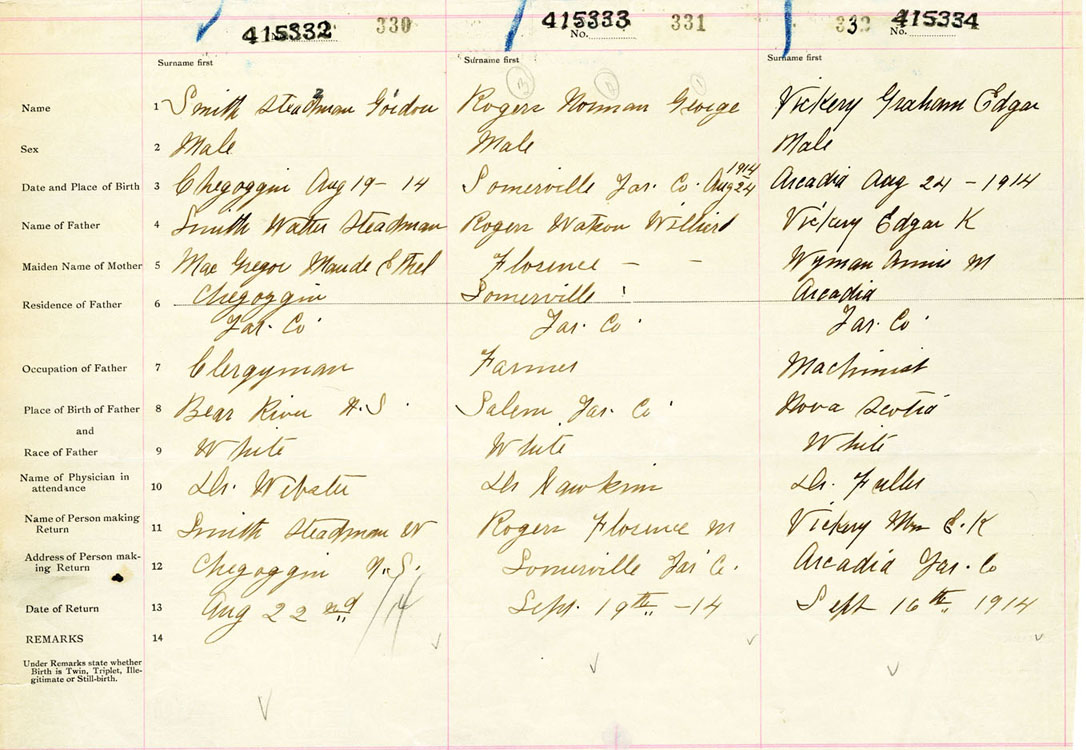 415332 330
415333 No. 331
332 No. 415334
Surname first
Surname first
Surname first
Name 1 Smith Steadman Gordon
Rogers Norman George
Vickery Graham Edgar
Sex 2 Male
Male
Male
Date and Place of Birth 3 Chegoggin Aug 19 - 14
Somerville Yar. Co. Aug 24 1914
Arcadia Aug 24 - 1914
Name of Father 4 Smith Walter Steadman
Rogers Watson
Vickery Edgar K
Maiden Name of Mother 5 Mac Gregor Maude Ethel
Florence - -
Wyman Annie M
Residence of Father 6 Chegoggin
Yar. Co.
Somerville
Yar. Co.
Arcadia
Yar. Co.
Occupation of Father 7 Clergyman
Farmer
Machinist
Place of Birth of Father 8 Bear River N.S.
Salem Yar. Co.
Nova Scotia
and
Race of Father 9 White
White
White
Name of Physician in
attendance 10 Dr. Webster
Dr Hawkins
Dr. Fuller
Name of Person making
Return 11 Smith Steadman W
Rogers Florence M
Vickery Mrs E. K
Address of Person mak-
ing Return 12 Chegoggin N.S.
Somerville Yar Co.
Arcadia Yar. Co
Date of Return 13 Aug 22nd /14
Sept. 19th - 14
Sept 16th 1914
REMARKS 14
Under Remarks state whether
Birth is Twin, Triplet, Ille-
gitimate or Still-birth.